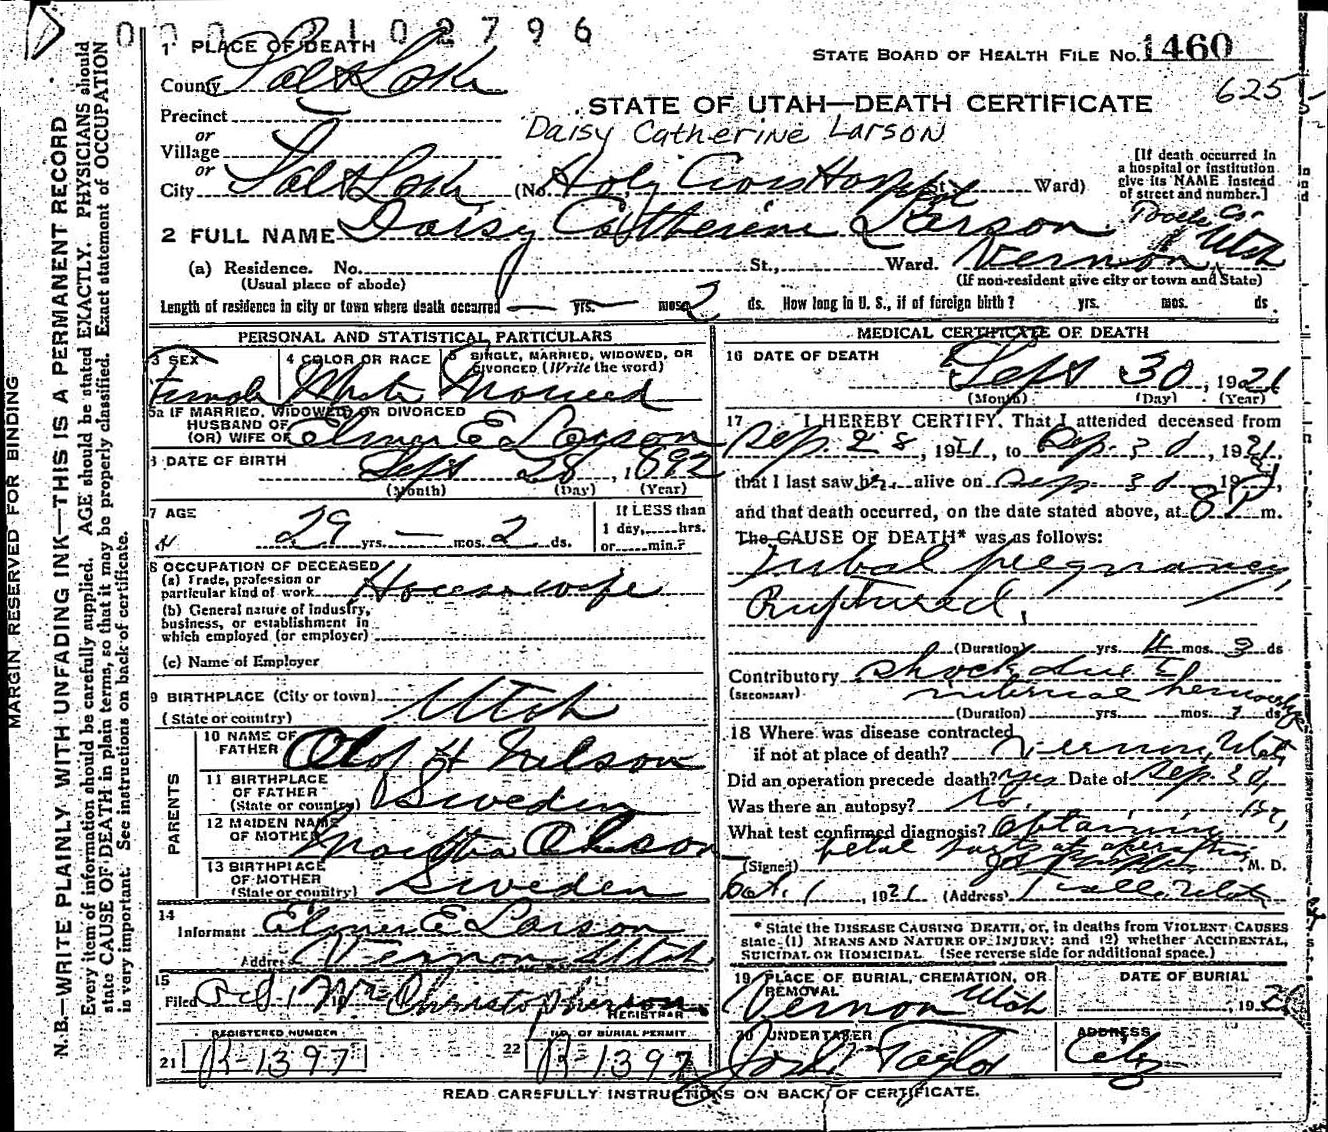 0 0 0 1 0 2 7 9 6
STATE BOARD OF HEALTH FILE No. 1460
625
STATE OF UTAH—DEATH CERTIFICATE
Daisy Catherine Larson
1 PLACE OF DEATH
County Salt Lake
Precinct
or
Village
or
City Salt Lake (No. Holy Cross Hospital St., Ward)
[If death occurred in
a hospital or institution
give its NAME instead
of street and number.]
2 FULL NAME Daisy Catherine Larson
Tooele Co.
(a) Residence. No. St., Ward. Vernon Utah
(Usual place of abode) (If non-resident give city or town and State)
Length of residence in city or town where death occurred — yrs. — mos. 2 ds. How long in U. S., if of foreign birth? yrs. mos. ds
PERSONAL AND STATISTICAL PARTICULARS
3 SEX 4 COLOR OR RACE 5 SINGLE, MARRIED, WIDOWED, OR
DIVORCED (Write the word)
Female White Married
5a IF MARRIED, WIDOWED, OR DIVORCED
HUSBAND OF
(OR) WIFE OF Elmer E Larson
6 DATE OF BIRTH Sept 28, 1892
(Month) (Day) (Year)
7 AGE 29 yrs. — mos. 2 ds.
If LESS than
1 day, hrs.
or min.?
8 OCCUPATION OF DECEASED
(a) Trade, profession or
particular kind of work Housewife
(b) General nature of industry,
business, or establishment in
which employed (or employer)
(c) Name of Employer
9 BIRTHPLACE (City or town)
(State or country) Utah
PARENTS
10 NAME OF
FATHER Olof H Nilson
11 BIRTHPLACE
OF FATHER
(State or country) Sweden
12 MAIDEN NAME
OF MOTHER Martha Olson
13 BIRTHPLACE
OF MOTHER
(State or country) Sweden
14
Informant Elmer E Larson
Address Vernon Utah
15
Filed Oct 1 Wm Christopherson
REGISTRAR
REGISTERED NUMBER NO. OF BURIAL PERMIT
21 R-1397 22 R-1397
MEDICAL CERTIFICATE OF DEATH
16 DATE OF DEATH
Sept 30, 1921
(Month) (Day) (Year)
17 I HEREBY CERTIFY, That I attended deceased from
Sep. 28, 1921, to Sep. 30, 1921,
that I last saw her alive on Sep 30 1921,
and that death occurred, on the date stated above, at 8 P m.
The CAUSE OF DEATH* was as follows:
Tubal pregnancy
Ruptured.
(Duration) yrs. mos. 3 ds
Contributory Shock due to
(SECONDARY) internal hemorrhage
(Duration) yrs. mos. 1 ds
18 Where was disease contracted
if not at place of death? Vernon, Utah
Did an operation precede death? Yes Date of Sep. 30,
Was there an autopsy? No.
What test confirmed diagnosis? Obtaining
fetal parts at operation
(Signed) M. D.
Oct. 1, 1921 (Address) Tooele Utah
* State the DISEASE CAUSING DEATH, or, in deaths from VIOLENT CAUSES
state (1) MEANS AND NATURE OF INJURY; and (2) whether ACCIDENTAL,
SUICIDAL OR HOMICIDAL. (See reverse side for additional space.)
19 PLACE OF BURIAL, CREMATION, OR
REMOVAL
Vernon Utah
DATE OF BURIAL
, 192
20 UNDERTAKER
Jos. Taylor
ADDRESS
City
READ CAREFULLY INSTRUCTIONS ON BACK OF CERTIFICATE.
MARGIN RESERVED FOR BINDING
N. B.—WRITE PLAINLY, WITH UNFADING INK—THIS IS A PERMANENT RECORD
Every item of information should be carefully supplied. AGE should be stated EXACTLY. PHYSICIANS should
state CAUSE OF DEATH in plain terms, so that it may be properly classified. Exact statement of OCCUPATION
is very important. See instructions on back of certificate.